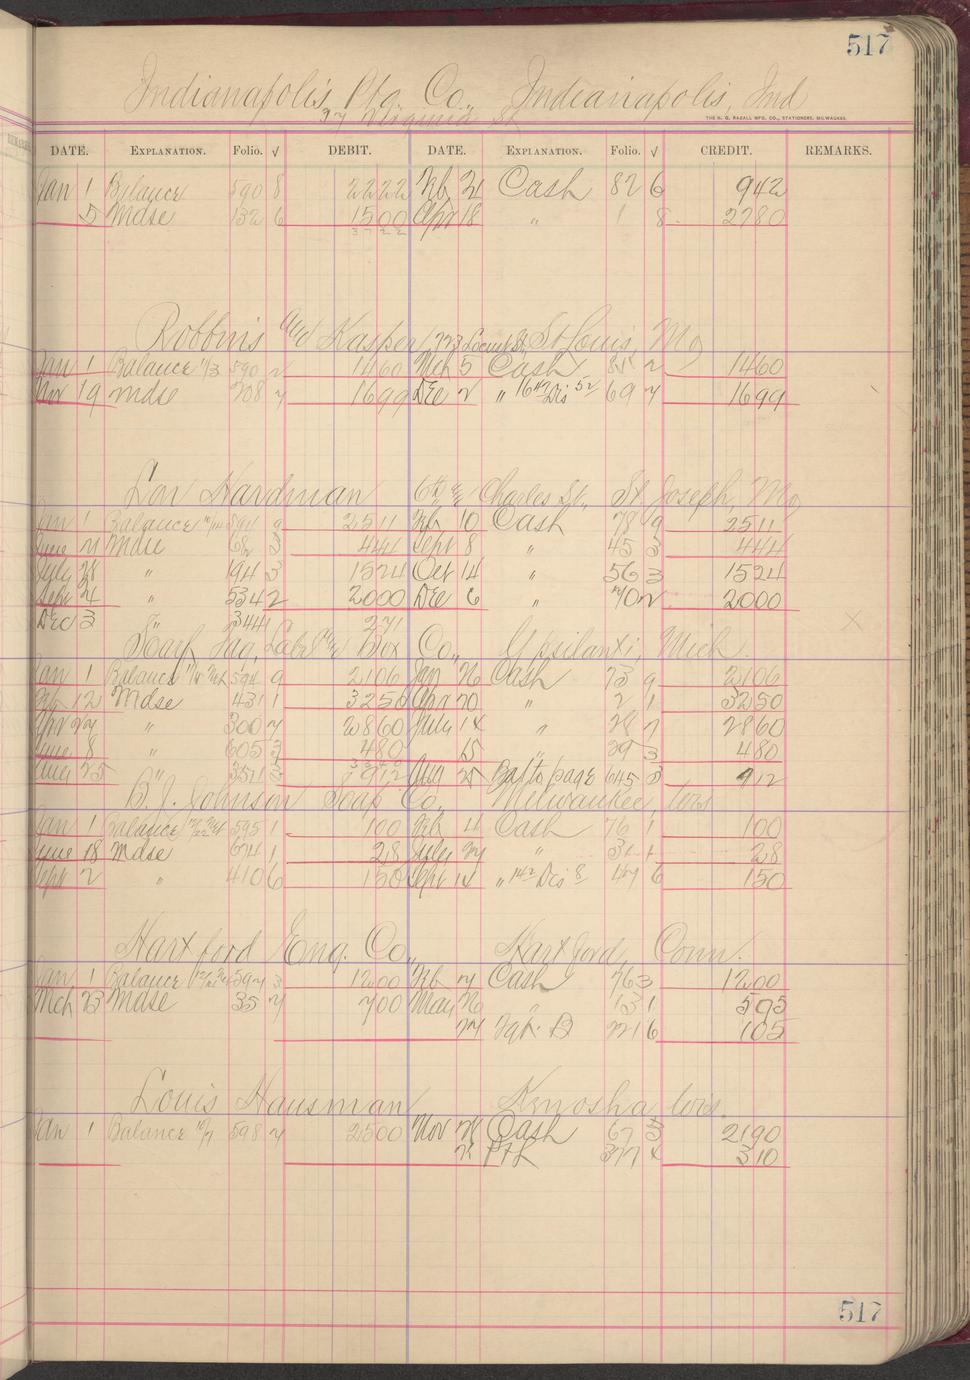 517
Indianapolis Ptg. Co., Indianapolis, Ind
37 Virginia St
THE H. G. RAZALL MFG. CO., STATIONERS, MILWAUKEE.
DATE. EXPLANATION. Folio. √ DEBIT. DATE. EXPLANATION. Folio. √ CREDIT. REMARKS.
Jan 1 Balance 590 8 2222 Feb 21 Cash 82 6 942
5 Mdse 132 6 1500 Apr 18 " 1 8 2780
3722
Robbins and Kasper 1723 Locust St, St Louis, Mo
Jan 1 Balance 590 2 1460 Mch 5 Cash 2 1460
Nov 19 Mdse 708 7 1699 Dec 2 " 69 7 1699
Lon Hardman 6th & Charles St., St Joseph, Mo
Jan 1 Balance 594 9 2511 Feb 10 Cash 78 9 2511
June 21 Mdse 3 444 Sept 8 " 45 3 444
July 28 " 194 3 1524 Oct 14 " 56 3 1524
Sept 4 " 534 2 2000 Dec 6 " 70 2 2000
Dec 3 " 344 271
Scarf Tag, Label and Box Co., Ypsilanti, Mich.
Jan 1 Balance 594 9 2106 Jan 26 Cash 73 9 2106
Feb 12 Mdse 431 1 3250 Apr 20 " 2 1 3250
Apr 27 " 300 7 2860 July 14 " 28 7 2860
June 8 " 605 3 480 15 " 29 3 480
3340
Aug 25 " 351 3 912 Aug 25 Bal to page 645 3 912
B. J. Johnson Soap Co., Milwaukee Wis
Jan 1 Balance 595 1 100 Feb 4 Cash 76 1 100
June 18 Mdse 674 1 28 July 27 " 31 1 28
Sept 2 " 410 6 150 Sept 14 " Dis 47 6 150
Hartford Eng. Co., Hartford, Conn.
Jan 1 Balance 597 3 1200 Feb 7 Cash 76 3 1200
Mch 23 Mdse 35 7 700 May 26 " 13 1 595
27 B 221 6 105
Louis Hausman Kenosha Wis.
Jan 1 Balance 598 7 2500 Nov 21 Cash 67 3 2190
377 310
517